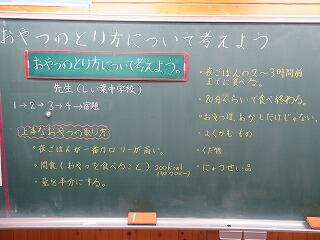 おやつのとり方について考えよう
おやつのとり方について考えよう。
先生(しい葉中学校)
1→2→3→4→宿題
上手なおやつの取り方
・夜ごはんが一番カロリーが高い。
・間食(おやつを食べること) 200kcal
・量を半分にする。
・夜ごはんの2〜3時間前
までに食べる。
・20分くらいで食べ終わる。
・おやつは、おかしだけじゃない。
・よくかむもの
・くだ物
・にゅうせい品